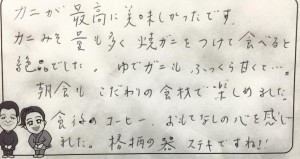 カニが最高に美味しかったです。
カニみそ量も多く焼ガニをつけて食べると
絶品でした。ゆでガニもふっくら甘くて…。
朝食もこだわりの食材で楽しめました。
食後のコーヒー、おもてなしの心を感じ
れた。椿柄の器 ステキですね!!